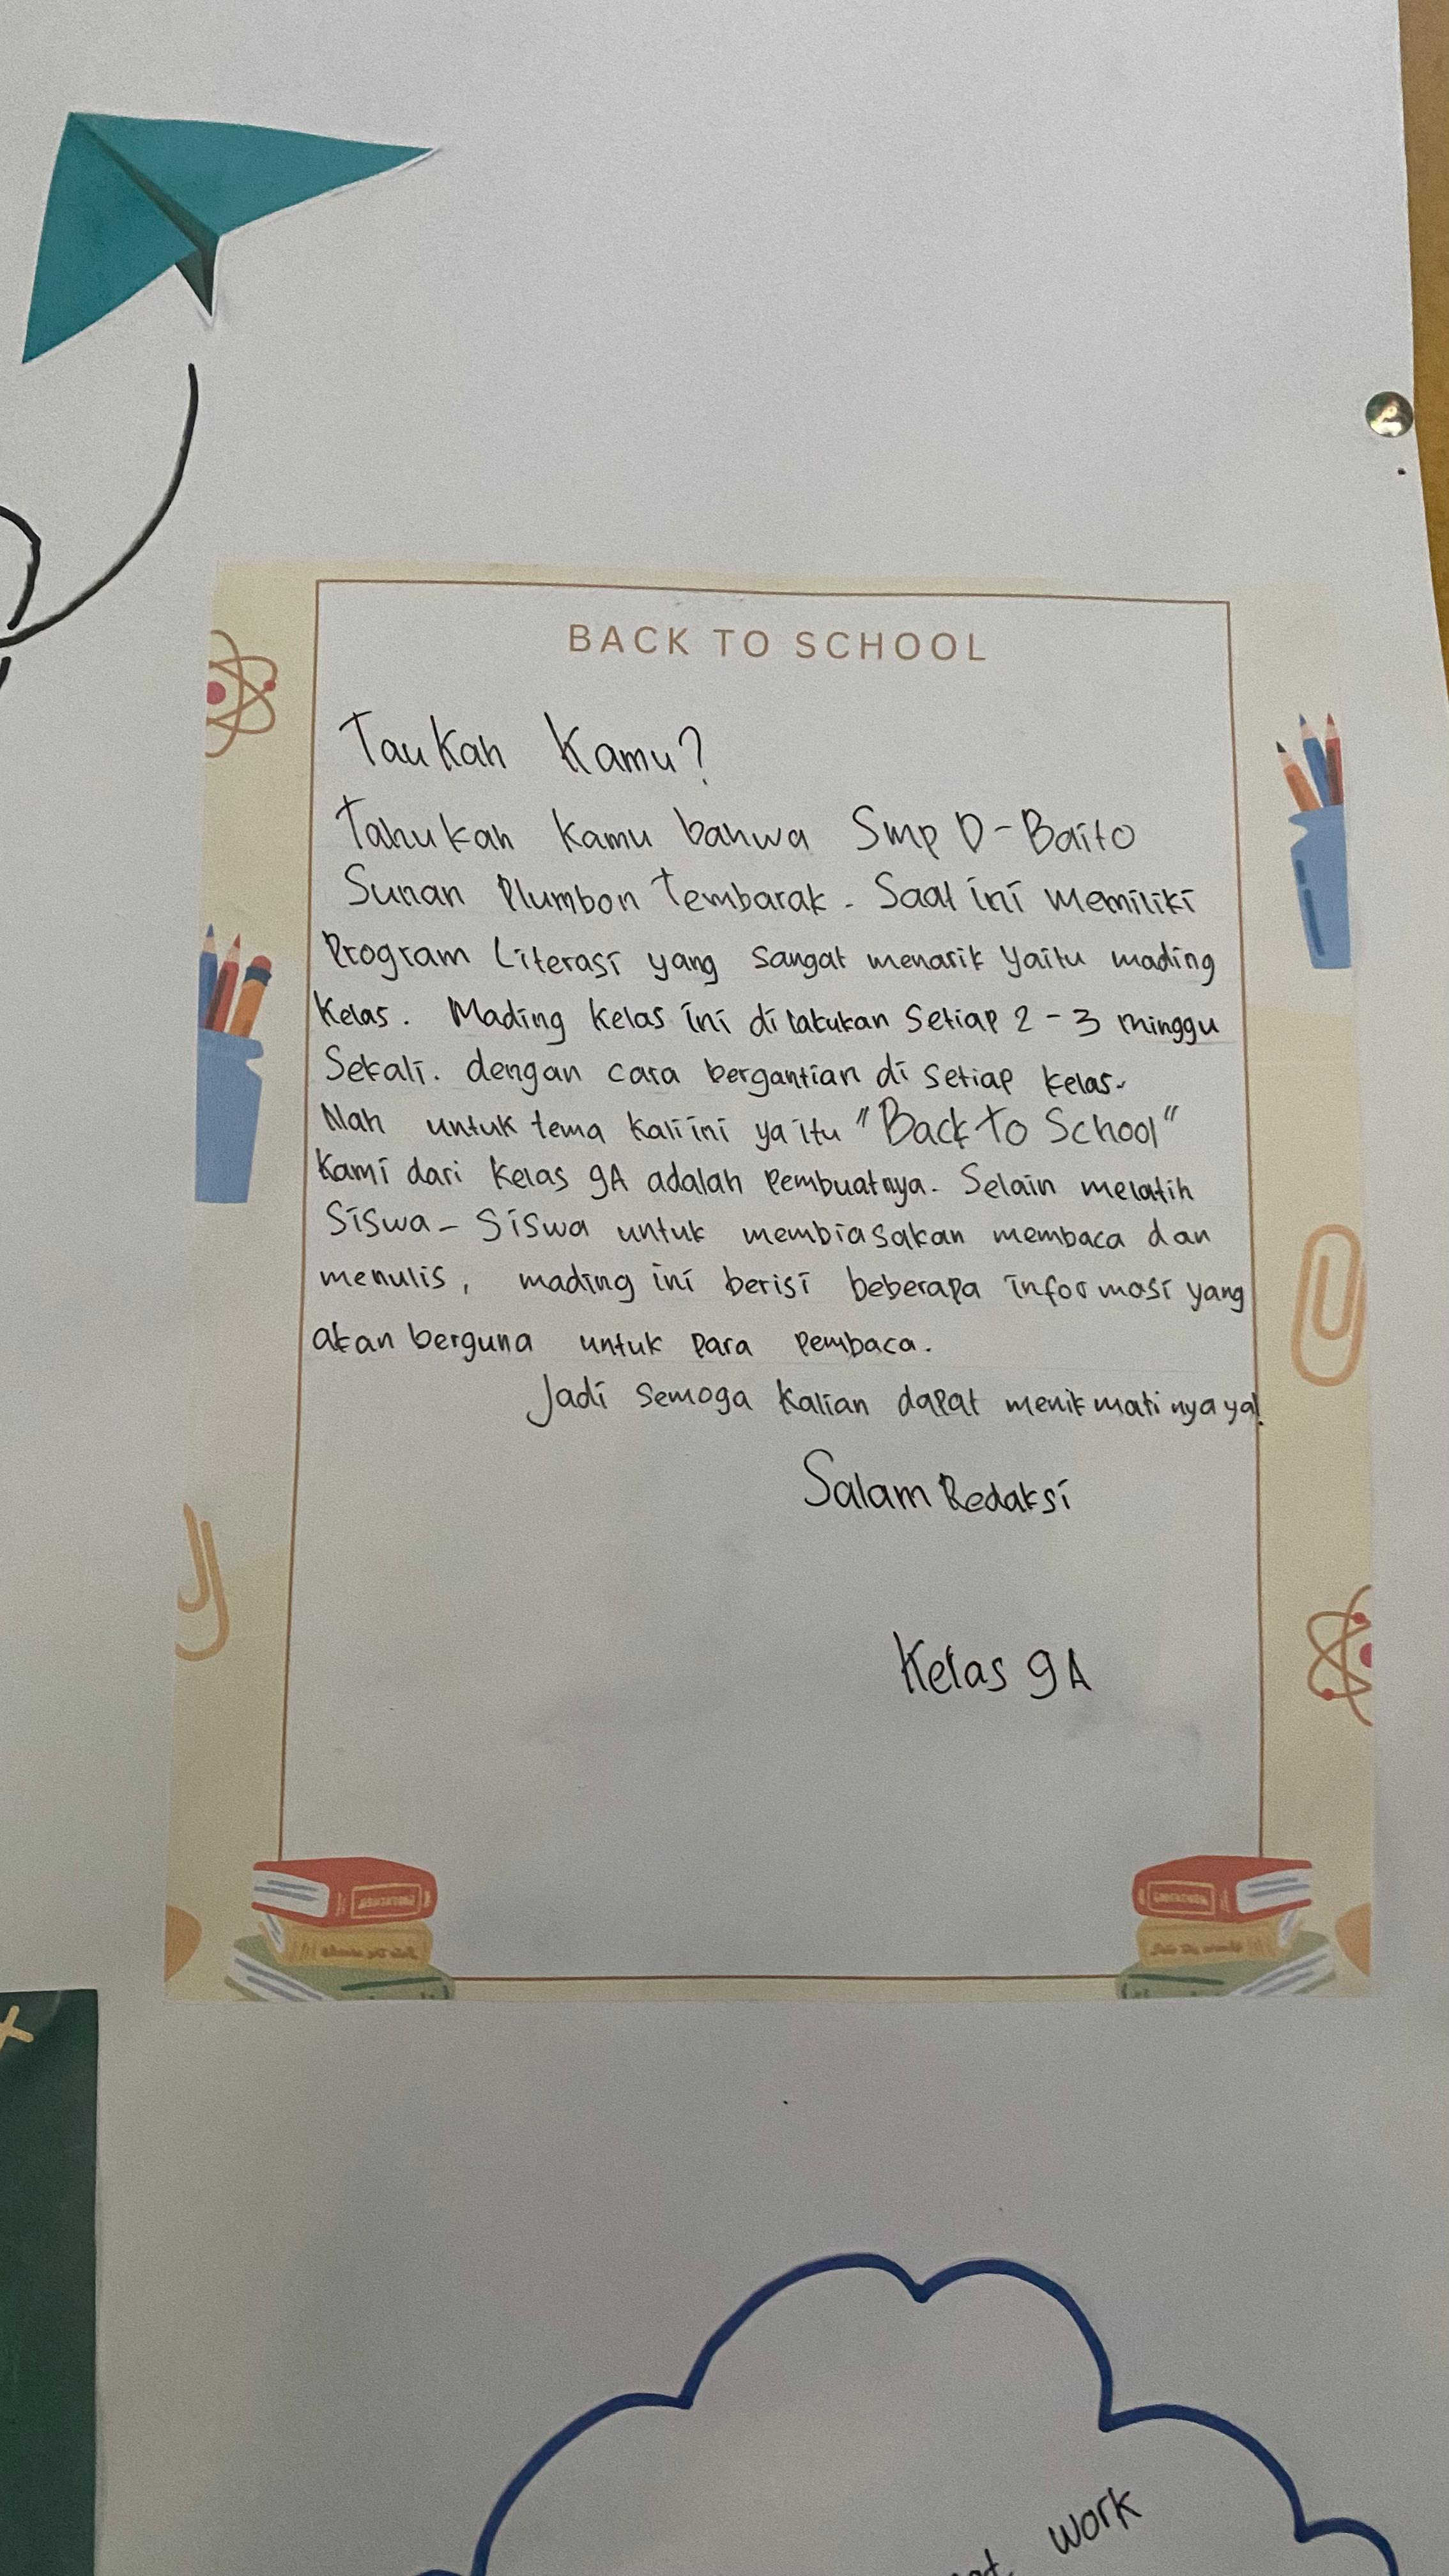 BACK TO SCHOOL
Taukah Kamu?
Tahukah Kamu bahwa Smp D-Baito
Sunan Plumbon Tembarak. Saat ini memiliki
Program Literasi yang sangat menarik yaitu mading
Kelas. Mading kelas ini di lakukan setiap 2-3 minggu
Sekali. dengan cara bergantian di setiap kelas.
Nah untuk tema kali ini yaitu "Back to School"
Kami dari kelas 9A adalah Pembuatnya. Selain melatih
Siswa-Siswa untuk membiasakan membaca dan
menulis, mading ini berisi beberapa informasi yang
akan berguna untuk para pembaca.
Jadi semoga kalian dapat menikmatinya ya!
Salam Redaksi
Kelas 9A
work